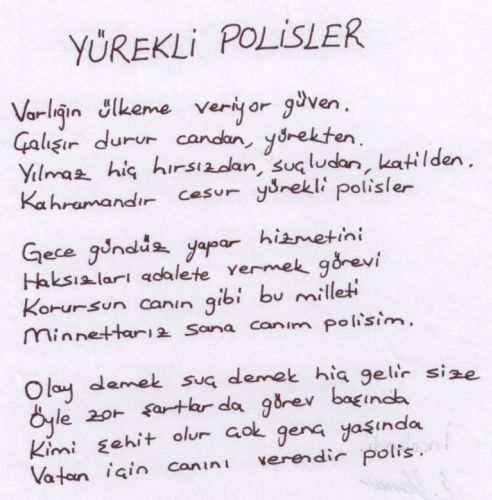 YÜREKLİ POLİSLER
Varlığın ülkeme veriyor güven.
Çalışır durur candan, yürekten.
Yılmaz hiç hırsızdan, suçludan, katilden.
Kahramandır cesur yürekli polisler
Gece gündüz yapar hizmetini
Haksızları adalete vermek görevi
Korursun canın gibi bu milleti
Minnettarız sana canım polisim.
Olay demek suç demek hiç gelir size
Öyle zor şartlarda görev başında
Kimi şehit olur çok genç yaşında
Vatan için canını verendir polis.